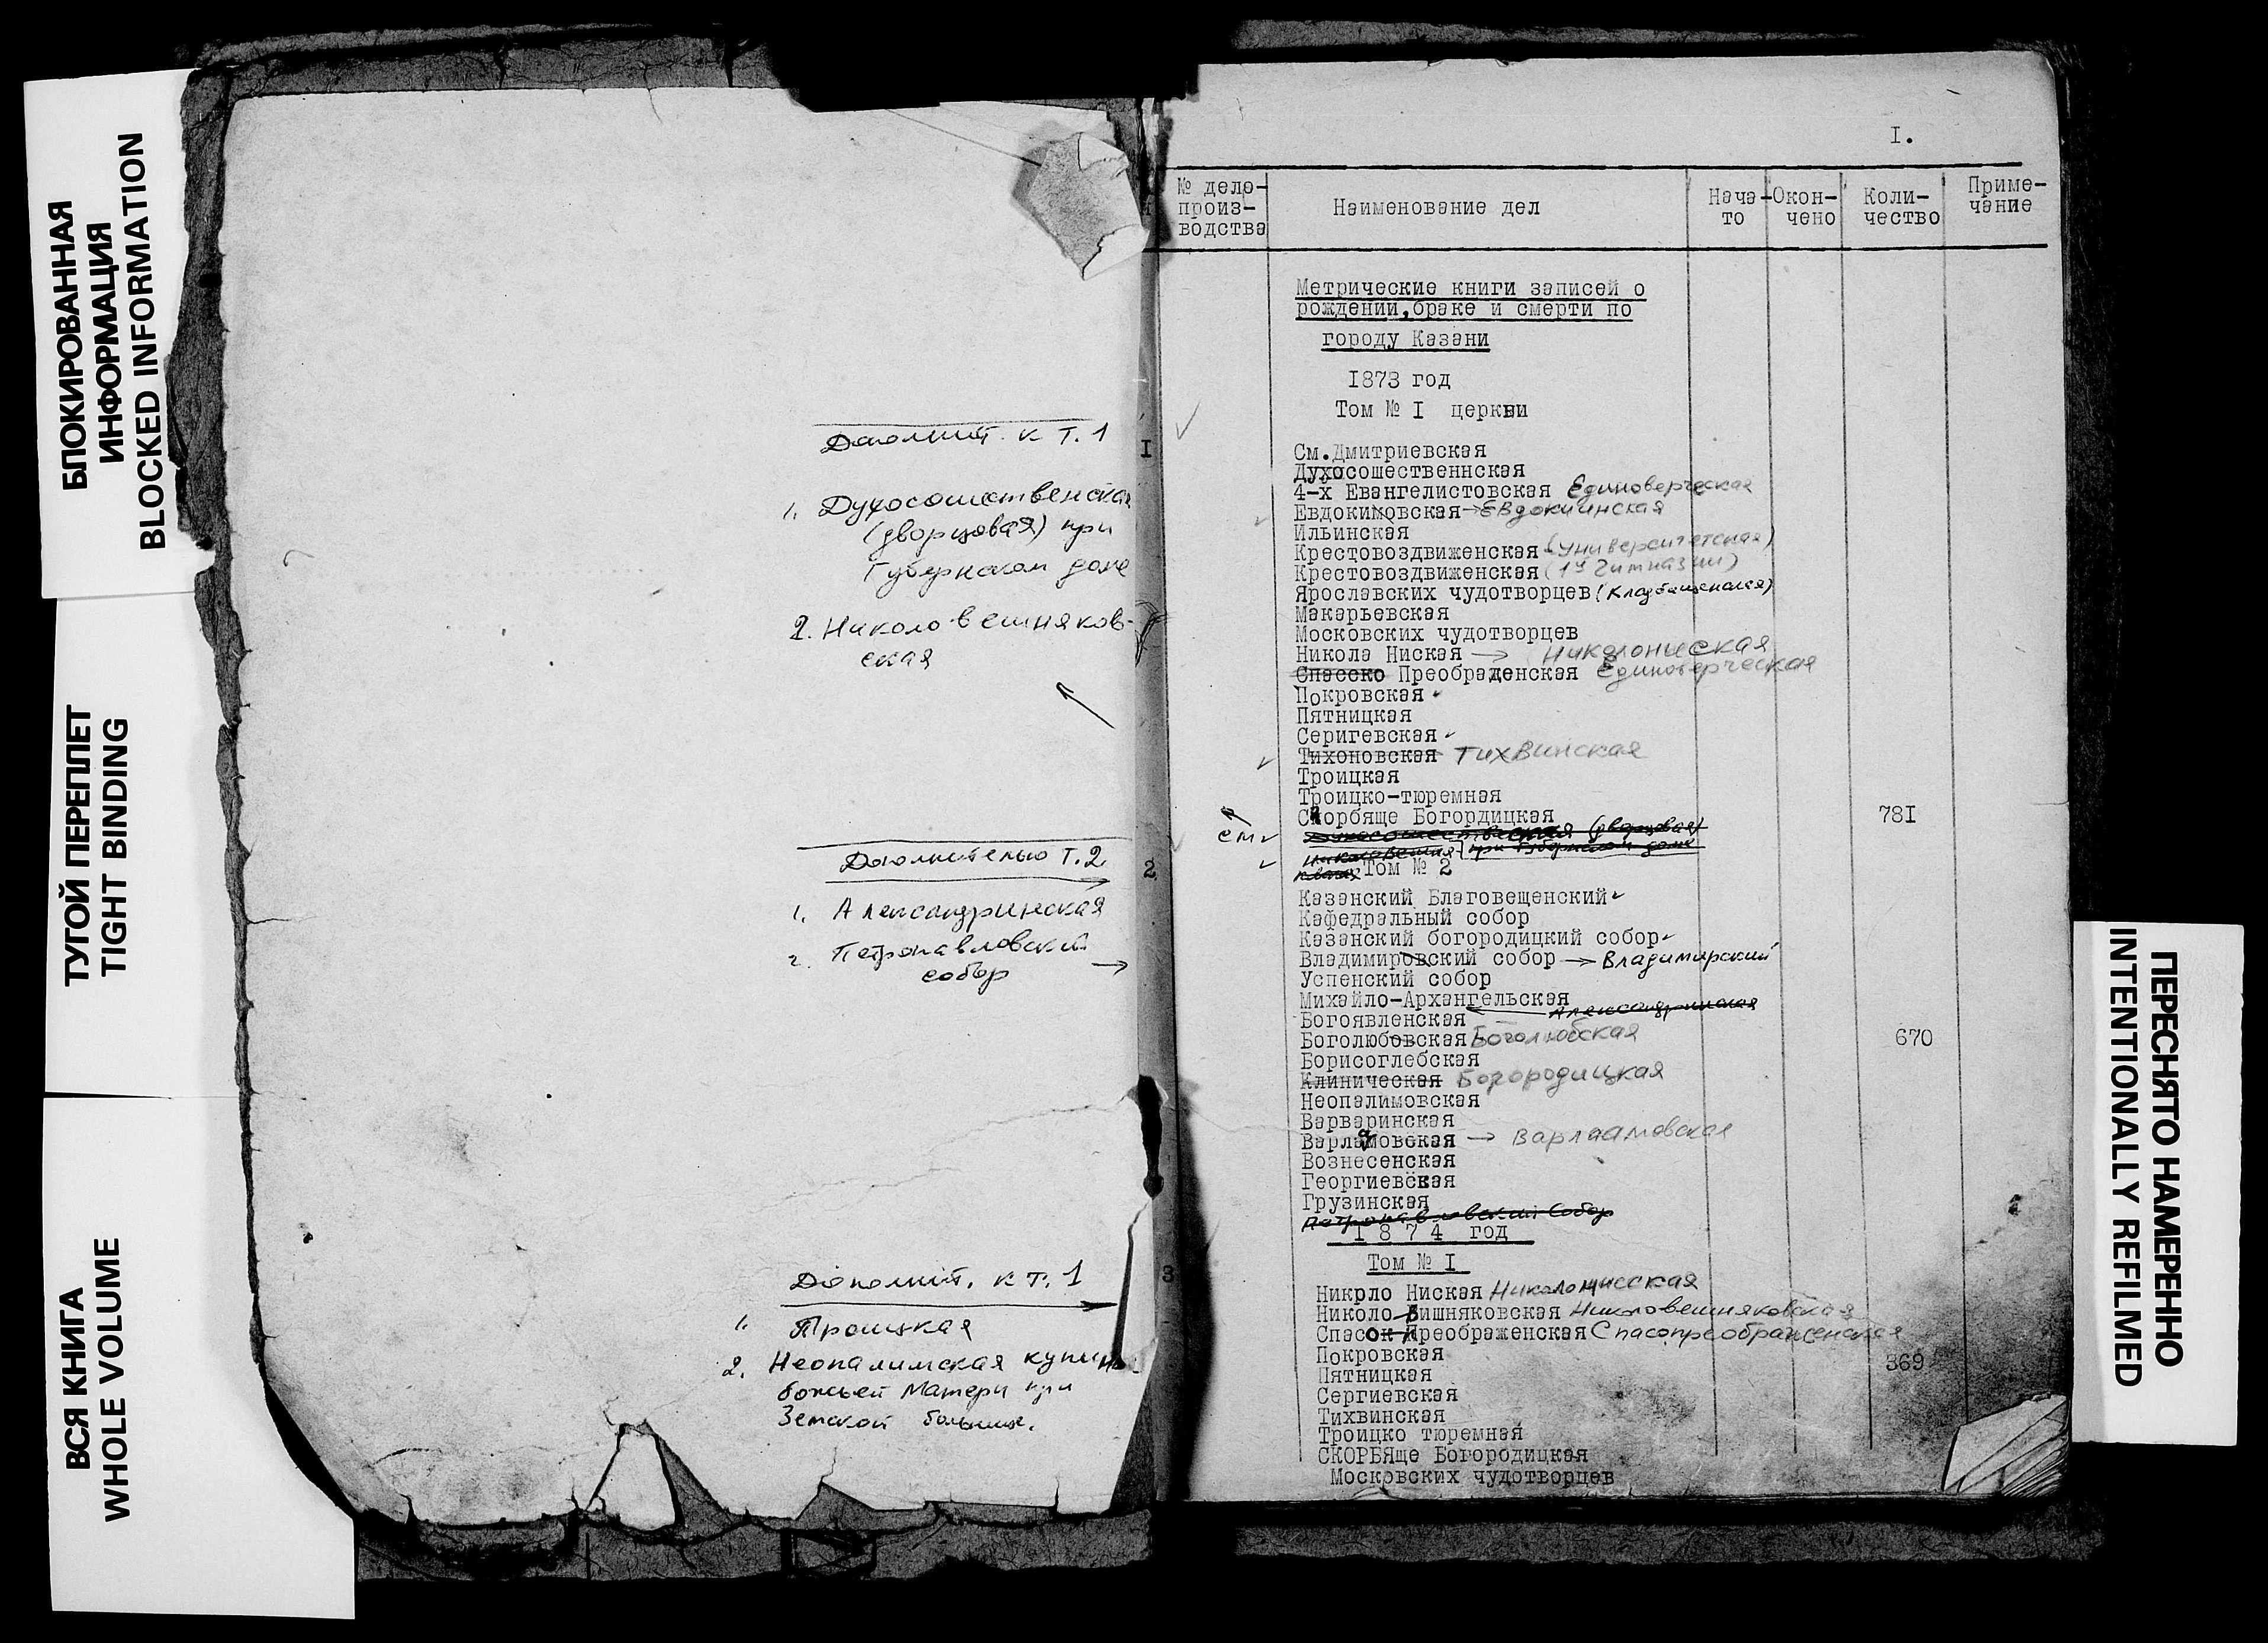 БЛОКИРОВАННАЯ
ИНФОРМАЦИЯ
BLOCKED INFORMATION
ТУГОЙ ПЕРЕПЛЕТ
TIGHT BINDING
ВСЯ КНИГА
WHOLE VOLUME
Дополнит. к т. 1
1. Духосошественская
(дворцовая) при
Губернском доме
2. Николо-вешняков-
ская
Дополнительно т. 2
1. Александринская
2. Петропавловский
собор
Дополнит. к т. 1
1. Троицкая
2. Неопалимская купина
божьей Матери при
Земской больнице.
I.
№ дело-
произ-
водства
Наименование дел
Нача-
то
Окон-
чено
Коли-
чество
Приме-
чание
Метрические книги записей о
рождении, браке и смерти по
городу Казани
I873 год
I
Том № I церкви
См.Дмитриевская
Духосошественнская
4-х Евангелистовская Единоверческая
Евдокимовская → Евдокиинская
Ильинская
Крестовоздвиженская (университетская)
Крестовоздвиженская (1й Гимназии)
Ярославских чудотворцев (Кладбищенская)
Макарьевская
Московских чудотворцев
Никола Ниская → Николониская
Спасско Преображенская Единоверческая
Покровская
Пятницкая
Серигевская
Тихоновская Тихвинская
Троицкая
Троицко-тюремная
Скорбяще Богордицкая 78I
см Духосошественская (дворцовая)
при Губернском доме
2
Том № 2
Казанский Благовещенский
Кафедральный собор
Казанский богородицкий собор
Владимировский собор → Владимирский
Успенский собор
Михайло-Архангельская
Александринская
Богоявленская
Боголюбовская Боголюбская 670
Борисоглебская
Клиническая Богородицкая
Неопалимовская
Варваринская
Варламовская → Варлаамовская
Вознесенская
Георгиевская
Грузинская
Петропавловский Собор
I 8 7 4 год
3
Том № I
Никрло Ниская Николонисская
Николо-Вишняковская Николовешняковская
Спасок Преображенская Спасопреображенская
Покровская 369
Пятницкая
Сергиевская
Тихвинская
Троицко тюремная
СКОРБЯще Богородицкая
Московских чудотворцев
ПЕРЕСНЯТО НАМЕРЕННО
INTENTIONALLY REFILMED